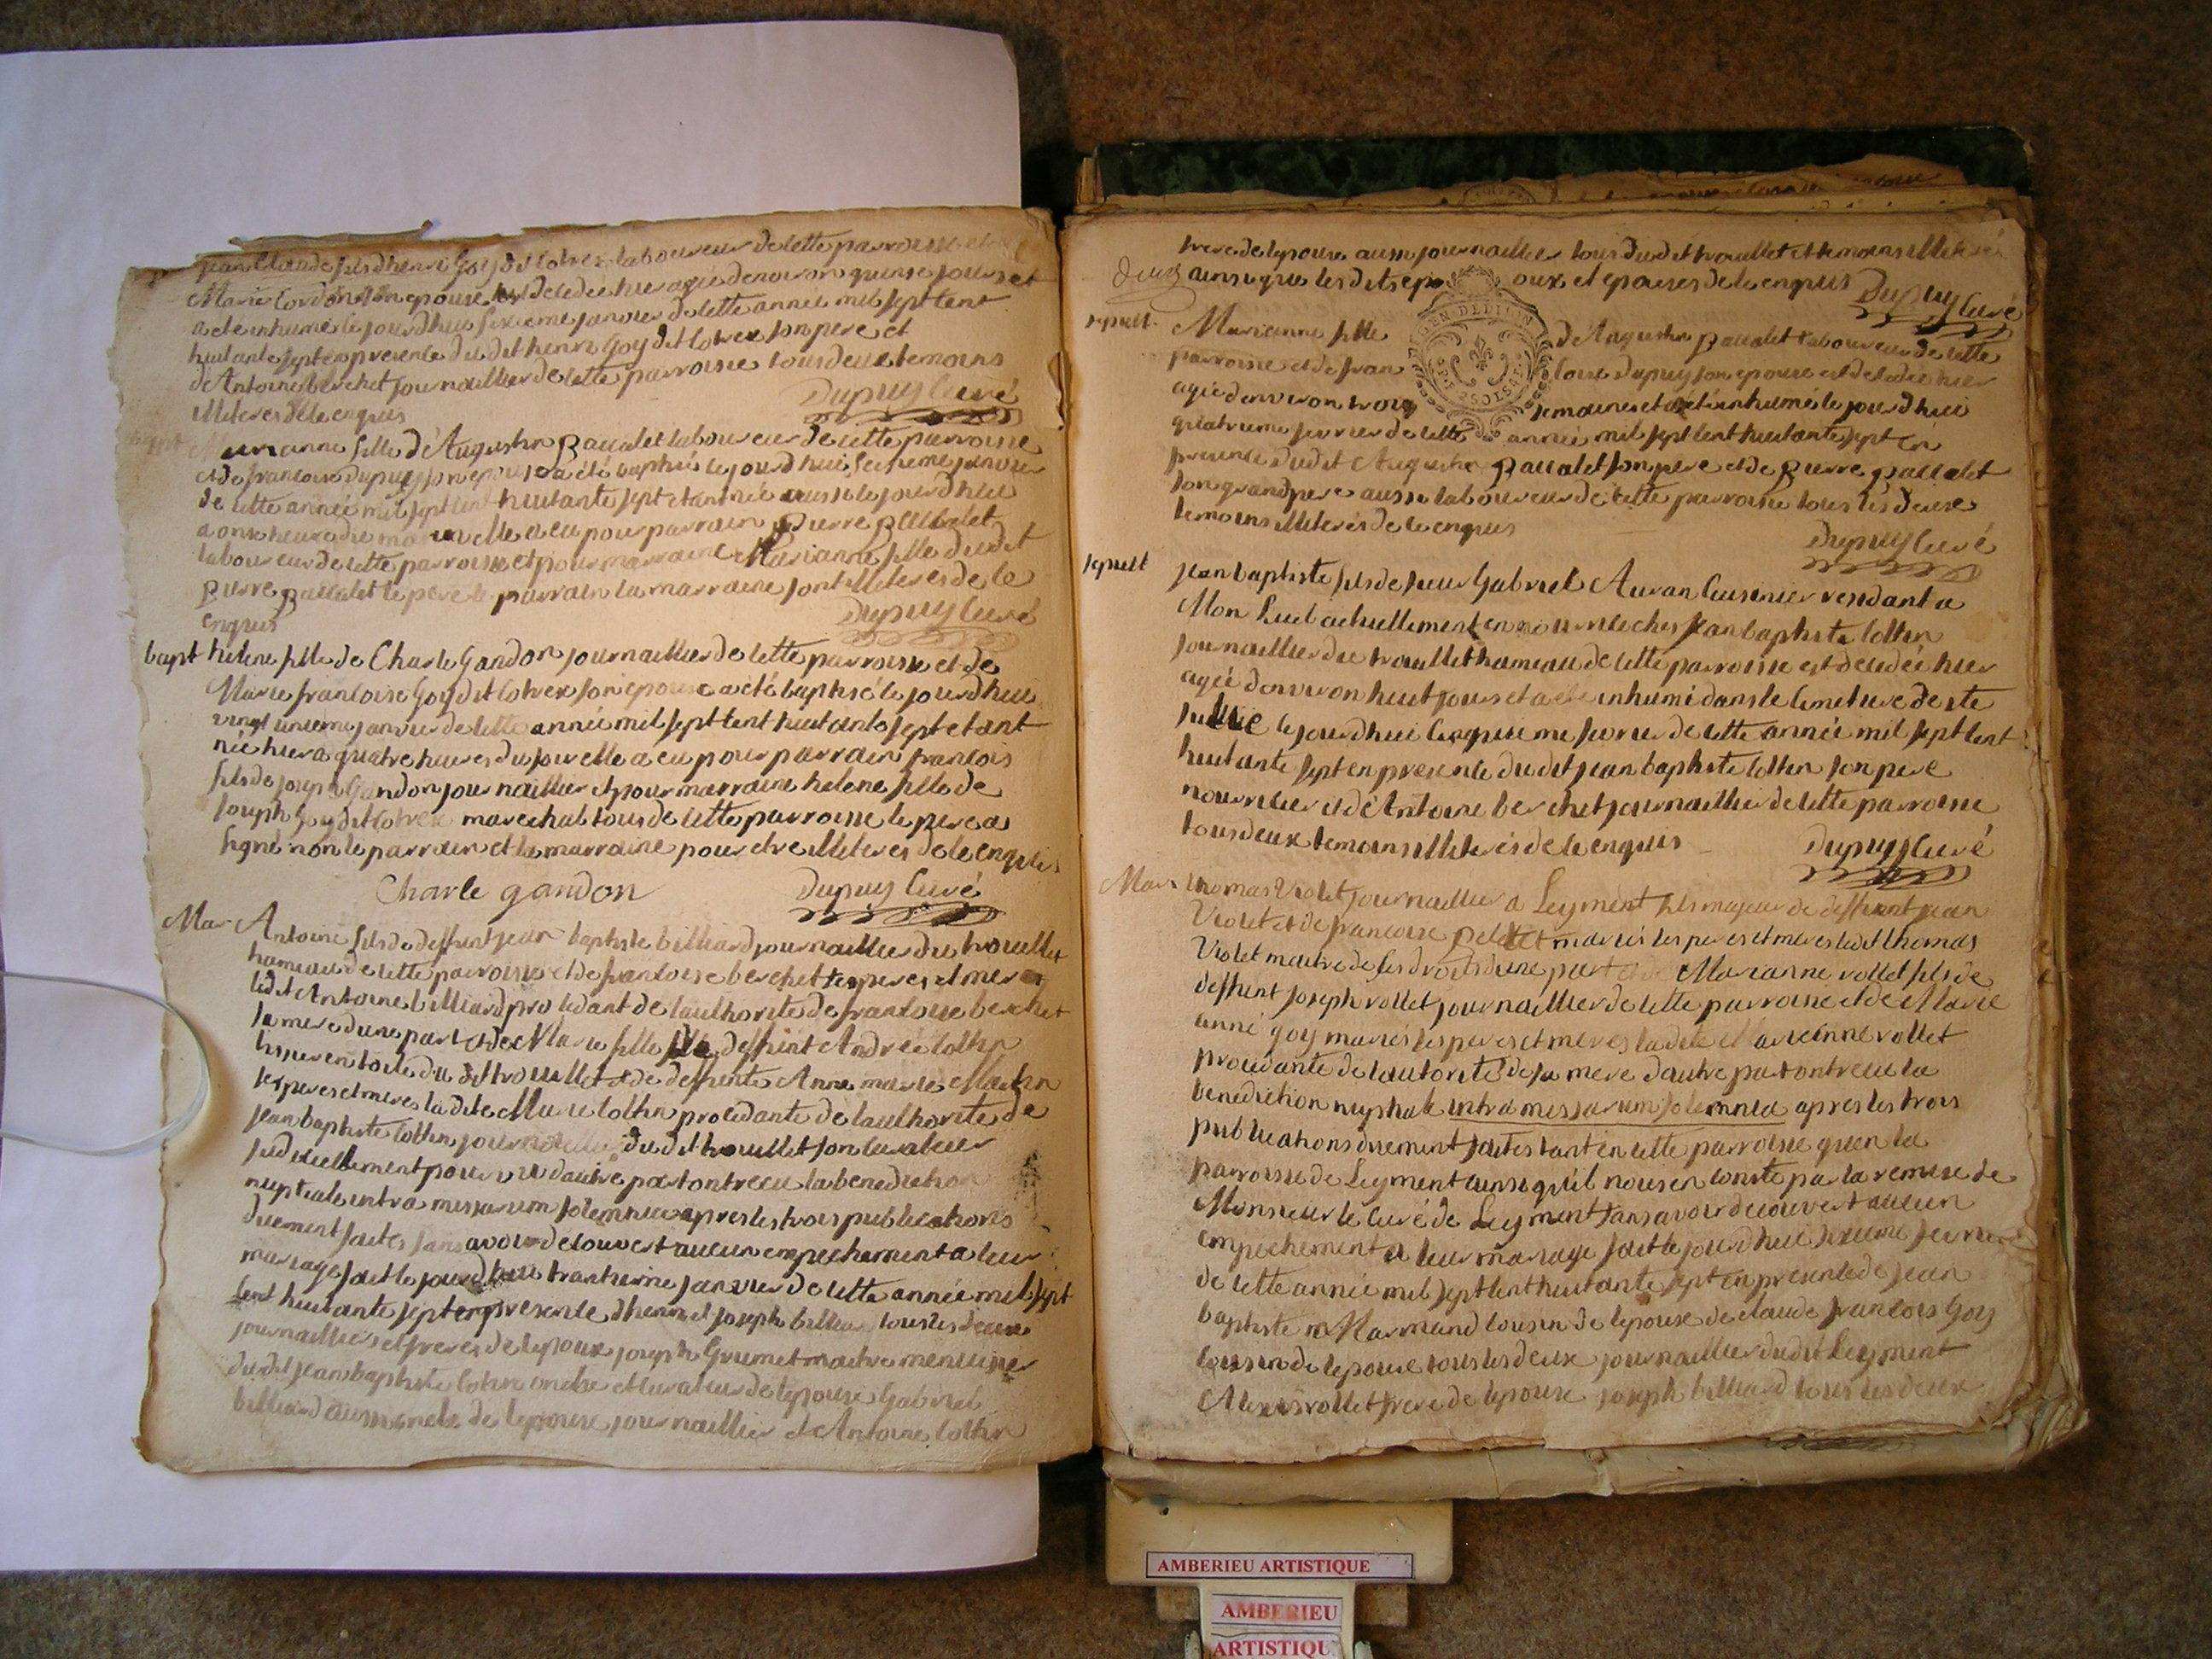 jean Claude fils d'henri Goy dit Cotrex laboureur de cette parroisse et
Marie Cordon son epouse est decedée hier agée denviron quinse jours et
a ete inhumé le jourdhui sixieme janvier de cette année mil sept cent
huitante sept en presence du dit henri Goy dit Cotrex son pere et
d'Antoine berchet journaillier de cette parroisse tous deux temoins
illiteres de ce enquis
Dupuy Curé
Marianne fille d'Augustin paccalet laboureur de cette parroisse
et de francoise dupuy son epouse a été baptisé le jourdhui janvier
de cette année mil sept cent huitante sept etant née aussi le jourdhui
a onse heure du matin elle a eu pour parrain pierre paccalet
laboureur de cette parroisse et pour marraine Marianne fille dudit
pierre paccalet le pere le parrain la marraine sont illiteres de ce
enquis
Dupuy Curé
bapt helene fille de Charle Gandon journaillier de cette parroisse et de
Marie francoise Goy dit Cotrex son epouse a eté baptisé le jourdhui
vingt unieme janvier de cette année mil sept cent huitante sept etant
née hier a quatre heures du soir elle a eu pour parrain francois
fils de joseph Gandon journaillier et pour marraine helene fille de
joseph Goy dit Cotrex marechal tous de cette parroisse le pere a
signé non le parrain et la marraine pour etre illiteres de ce enquis
Charle gandon Dupuy Curé
Mar Antoine fils de deffunt jean baptiste billiard journaillier du trouillet
hameau de cette parroisse et de francoise berchet ses peres et meres
ledit Antoine billiard procedant de lauthorité de francoise berchet
sa mere dune part et de Marie fille de deffunt André Cottin
tisseren toile du dit trouillet et de deffunte Anne marie Martin
ses peres et meres la dite Marie Cottin procedante de lauthorité de
jean baptiste Cottin journaillier du dit trouillet son curateur
judiciellement pourvu dautre part ont recu la benediction
nuptiale intra missarum solemnia apres les trois publications
duement faites sans avoir decouvert aucun empechement a leur
mariage fait le jourdhui trantieme janvier de cette année mil sept
cent huitante sept en presence dhenri et joseph billiard tous les deux
journailliers et freres de lepoux joseph Grumet maitre menuisier
du dit jean baptiste Cottin oncle et curateur de lepouse Gabriel
billiard aussi oncle de lepoux journaillier et Antoine Cottin
frere de lepouse aussi journaillier tous du dit trouillet et temoins illiterés
deux ainsi que les dits epoux et epouses de ce enquis Dupuy Curé
sepult Marianne fille de Augustin paccalet laboureur de cette
GEN DE DIJON
parroisse et de francoise dupuy son epouse est decedée hier
agée denviron trois semaines et a eté inhumé le jourdhui
quatrieme fevrier de cette année mil sept cent huitante sept en
presence dudit Augustin paccalet son pere et de pierre paccalet
son grand pere aussi laboureur de cette parroisse tous les deux
temoins illiterés de ce enquis
Dupuy Curé
sepult jean baptiste fils de sieur Gabriel Auran Cuisinier residant a
Mon Luel actuellement en nourrice ches jean baptiste Cottin
journaillier du trouillet hameau de cette parroisse est decedé hier
agée denviron huit jours et a eté inhumé dans le cimetiere de ste
julie le jourdhui cinquieme fevrier de cette année mil sept cent
huitante sept en presence du dit jean baptiste Cottin son pere
nourricier et d'Antoine berchet journaillier de cette parroisse
tous deux temoins illiterés de ce enquis
Dupuy Curé
Mar thomas Violet journaillier a Leyment fils majeur de deffunt jean
Violet et de francoise mariés ses peres et meres ledit thomas
Violet maitre de ses droits dune part et de Marianne rollet fils de
deffunt joseph rollet journaillier de cette parroisse et de Marie
anne goy mariés ses peres et meres la dite Marieanne rollet
procedante de lautorité de sa mere dautre part ont recu la
benediction nuptiale intra missarum solemnia apres les trois
publications duement faites tant en cette parroisse quen la
parroisse de Leyment ainsi quil nous en conste par la remise de
Monsieur le Curé de Leyment sans avoir decouvert aucun
empechement a leur mariage fait le jourdhui sixieme fevrier
de cette année mil sept cent huitante sept en presence de jean
baptiste Marmand cousin de lepoux de claude francois Goy
cousin de lepouse tous les deux journaillier du dit Leyment
Alexis rollet frere de lepouse joseph billiard tous les deux
AMBERIEU ARTISTIQUE
AMBERIEU
ARTISTIQU